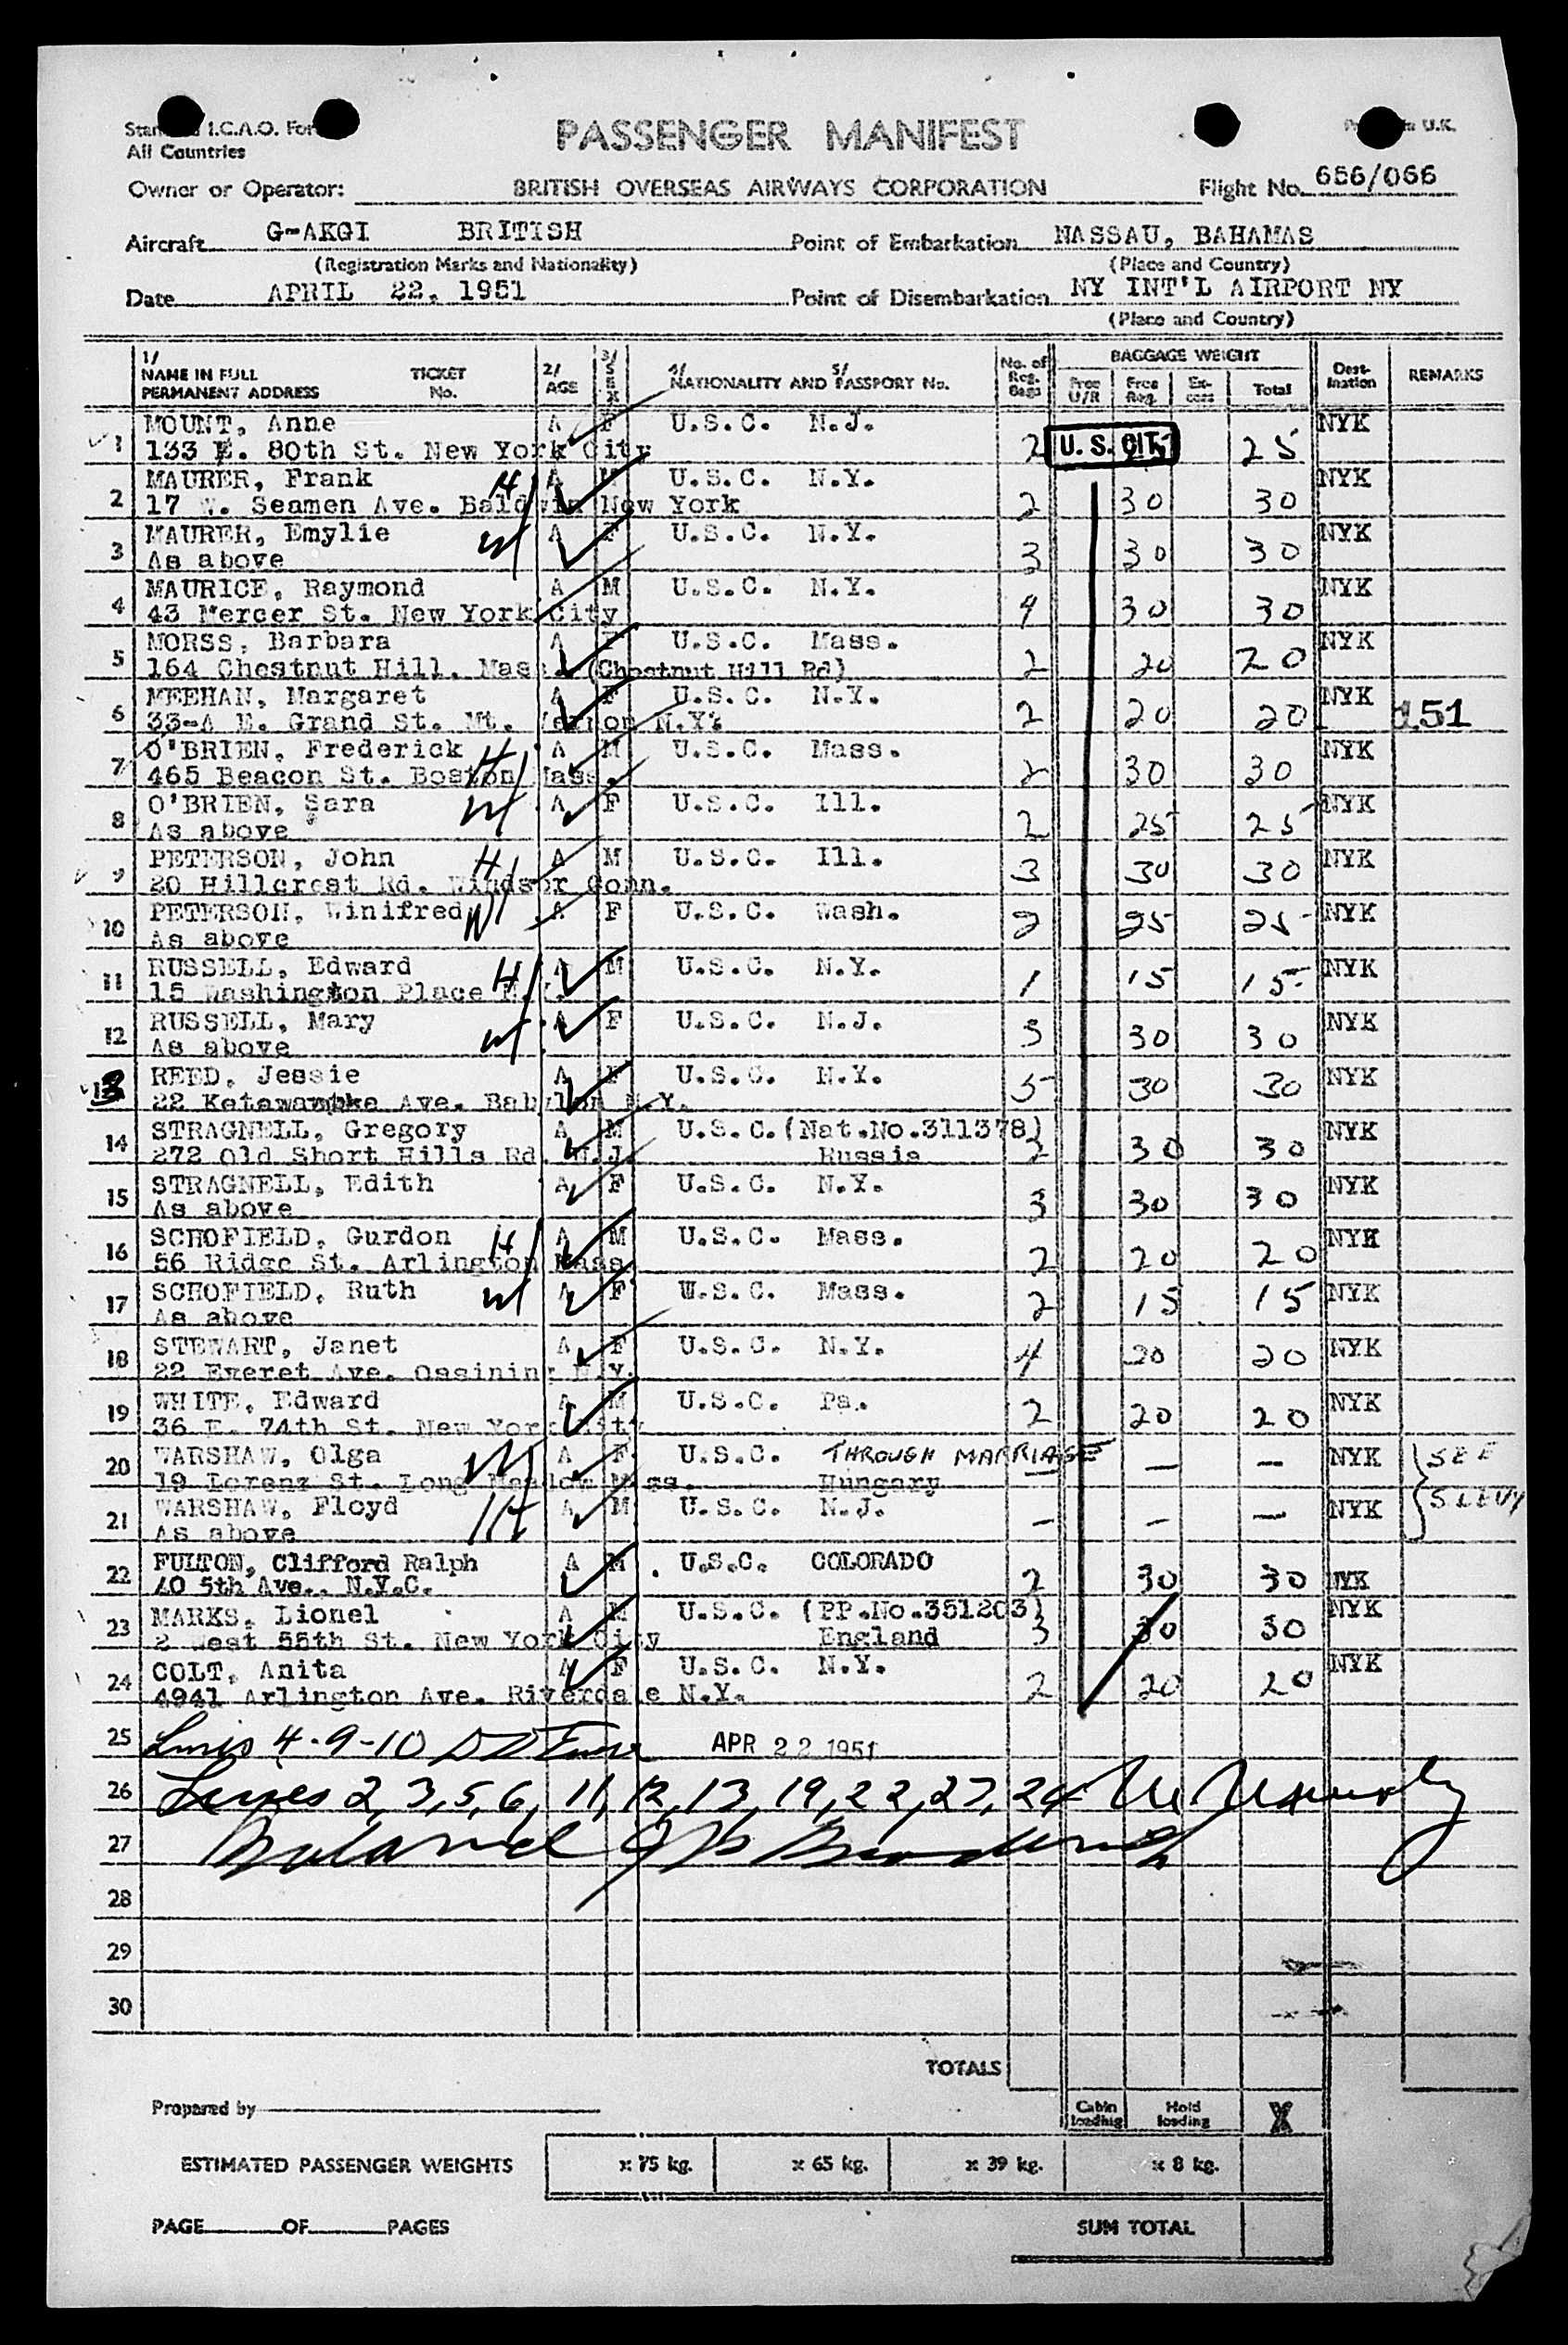 Standard I.C.A.O. Form
All Countries
U.K.
PASSENGER MANIFEST
Owner or Operator: BRITISH OVERSEAS AIRWAYS CORPORATION Flight No. 656/066
Aircraft G-AKGI BRITISH Point of Embarkation NASSAU, BAHAMAS
(Registration Marks and Nationality) (Place and Country)
Date APRIL 22, 1951 Point of Disembarkation NY INT'L AIRPORT NY
(Place and Country)
1/ NAME IN FULL PERMANENT ADDRESS TICKET No. 2/ AGE 3/ SEX 4/ NATIONALITY AND 5/ PASSPORT No. No. of Reg. Bags BAGGAGE WEIGHT Free U/R Free Reg. Ex-cess Total Dest-ination REMARKS
1 MOUNT, Anne A F U.S.C. N.J. 2 U. S. CIT. 25 NYK
133 E. 80th St. New York City
2 MAURER, Frank H A M U.S.C. N.Y. 2 30 30 NYK
17 W. Seamen Ave. Baldwin New York
3 MAURER, Emylie W A F U.S.C. N.Y. 3 30 30 NYK
As above
4 MAURICE, Raymond A M U.S.C. N.Y. 4 30 30 NYK
43 Mercer St. New York City
5 MORSS, Barbara A F U.S.C. Mass. 2 20 20 NYK
164 Chestnut Hill. Mass. (Chestnut Hill Rd)
6 MEEHAN, Margaret A F U.S.C. N.Y. 2 20 20 NYK 151
33-A E. Grand St. Mt. Vernon N.Y.
7 O'BRIEN, Frederick H A M U.S.C. Mass. 2 30 30 NYK
465 Beacon St. Boston Mass.
8 O'BRIEN, Sara W A F U.S.C. Ill. 2 25 25 NYK
As above
9 PETERSON, John H A M U.S.C. Ill. 3 30 30 NYK
20 Hillcrest Rd. Windsor Conn.
10 PETERSON, Winifred W A F U.S.C. Wash. 2 25 25 NYK
As above
11 RUSSELL, Edward H A M U.S.C. N.Y. 1 15 15 NYK
15 Washington Place N.Y.
12 RUSSELL, Mary W A F U.S.C. N.J. 3 30 30 NYK
As above
13 REED, Jessie A F U.S.C. N.Y. 5 30 30 NYK
22 Ave. Babylon N.Y.
14 STRAGNELL, Gregory A M U.S.C. (Nat.No.311378) 2 30 30 NYK
272 Old Short Hills Rd. N.J. Russia
15 STRAGNELL, Edith A F U.S.C. N.Y. 3 30 30 NYK
As above
16 SCHOFIELD, Gurdon H A M U.S.C. Mass. 2 20 20 NYK
56 Ridge St. Arlington Mass
17 SCHOFIELD, Ruth W A F U.S.C. Mass. 2 15 15 NYK
As above
18 STEWART, Janet A F U.S.C. N.Y. 4 20 20 NYK
22 Everet Ave. Ossining N.Y.
19 WHITE, Edward A M U.S.C. Pa. 2 20 20 NYK
36 E. 74th St. New York City
20 WARSHAW, Olga W A F U.S.C. THROUGH MARRIAGE — — — NYK SEE
19 Lorenz St. Long Meadow Mass. Hungary
21 WARSHAW, Floyd H A M U.S.C. N.J. — — — NYK
As above
22 FULTON, Clifford Ralph A M U.S.C. COLORADO 2 30 30 NYK
40 5th Ave., N.Y.C.
23 MARKS, Lionel A M U.S.C. (PP.No.351203) 3 30 30 NYK
2 West 55th St. New York City England
24 COLT, Anita A F U.S.C. N.Y. 2 20 20 NYK
4941 Arlington Ave. Riverdale N.Y.
25 4-9-10 APR 22 1951
26 Lines 2, 3, 5, 6, 11, 12, 13, 19, 22, 23, 24
27 Balance
28
29
30
TOTALS
Prepared by Cabin loading Hold loading X
ESTIMATED PASSENGER WEIGHTS x 75 kg. x 65 kg. x 39 kg. x 8 kg.
PAGE OF PAGES SUM TOTAL